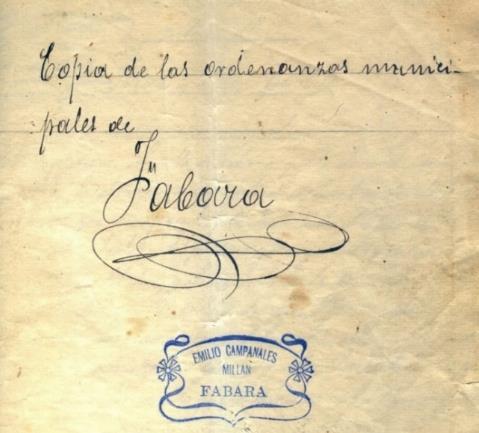 Copia de las ordenanzas munici-
pales de
Fabara
EMILIO CAMPANALES
MILLAN
FABARA